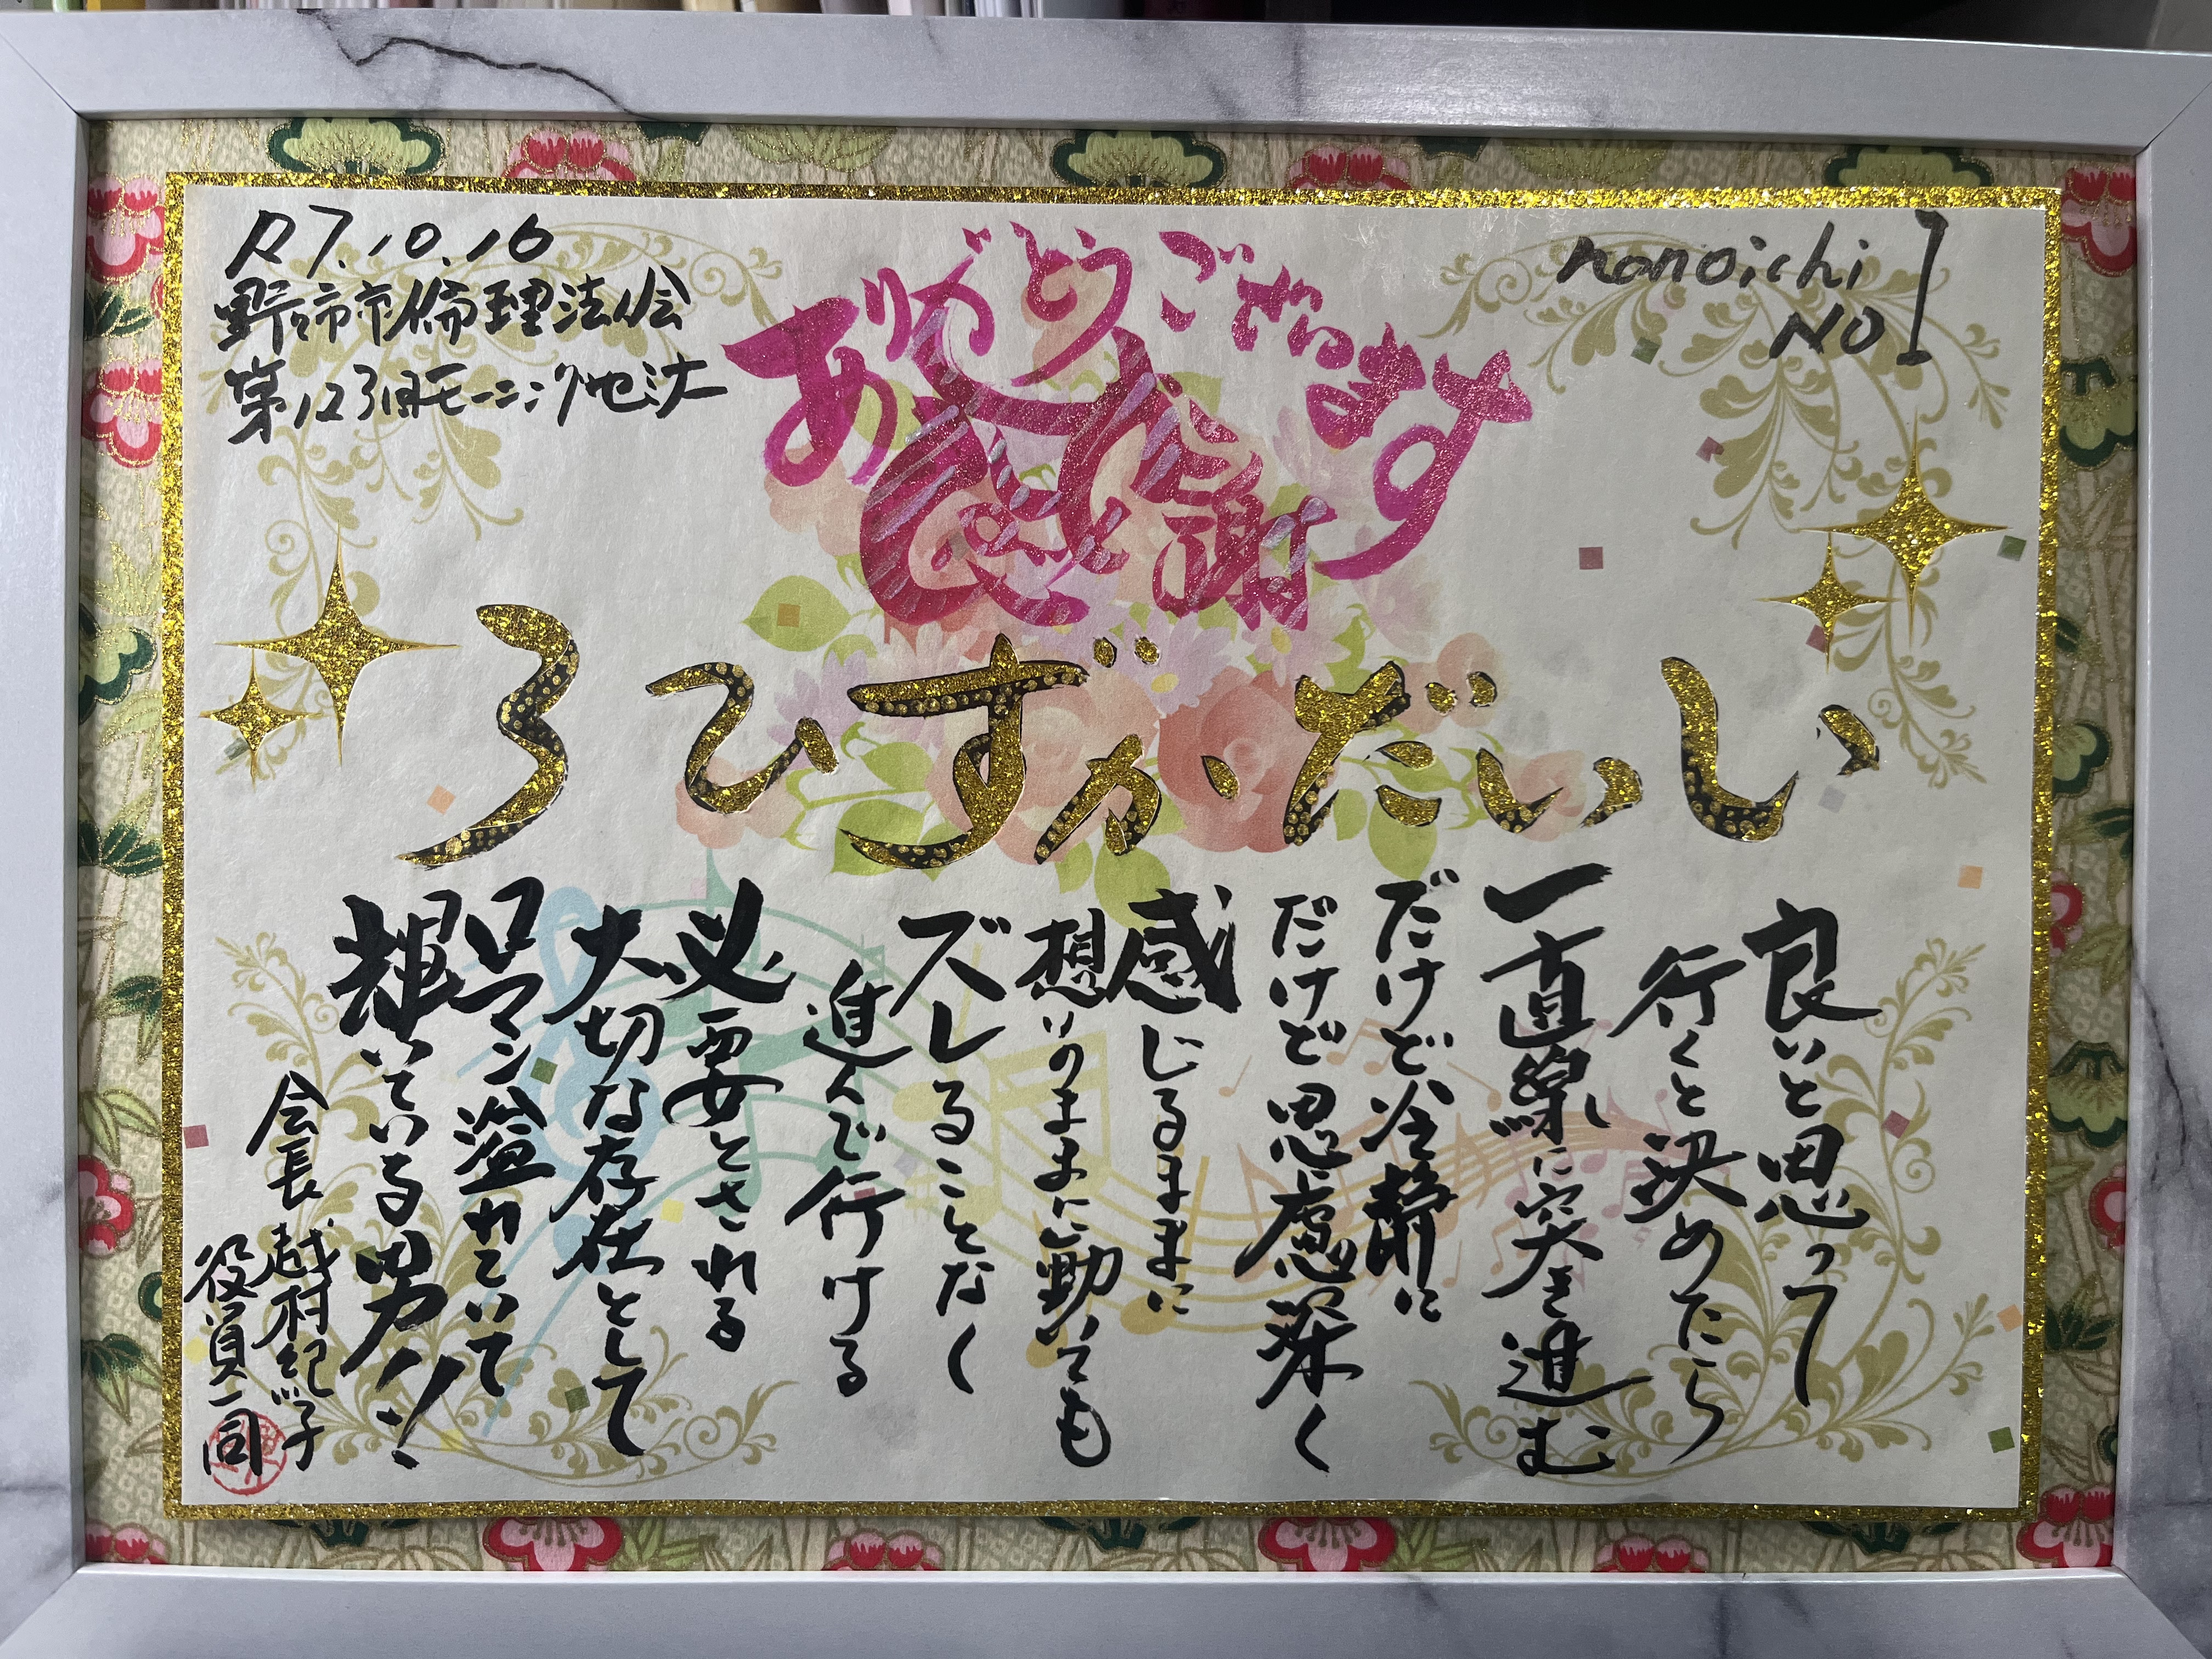 R7.10.16
野々市市倫理法人会
第123回モーニングセミナー
nonoichi
NO1
ありがとうございます
感謝
いいだかずひろ
良いと思って
行くと決めたら
一直線に突き進む
だけど冷静に
だけど思慮深く
感じるままに
想いのままに動いても
ズレることなく
進んで行ける
必要とされる
大切な存在として
ロマン溢れていて
輝いている男!!
会長 越村紀子
役員一同